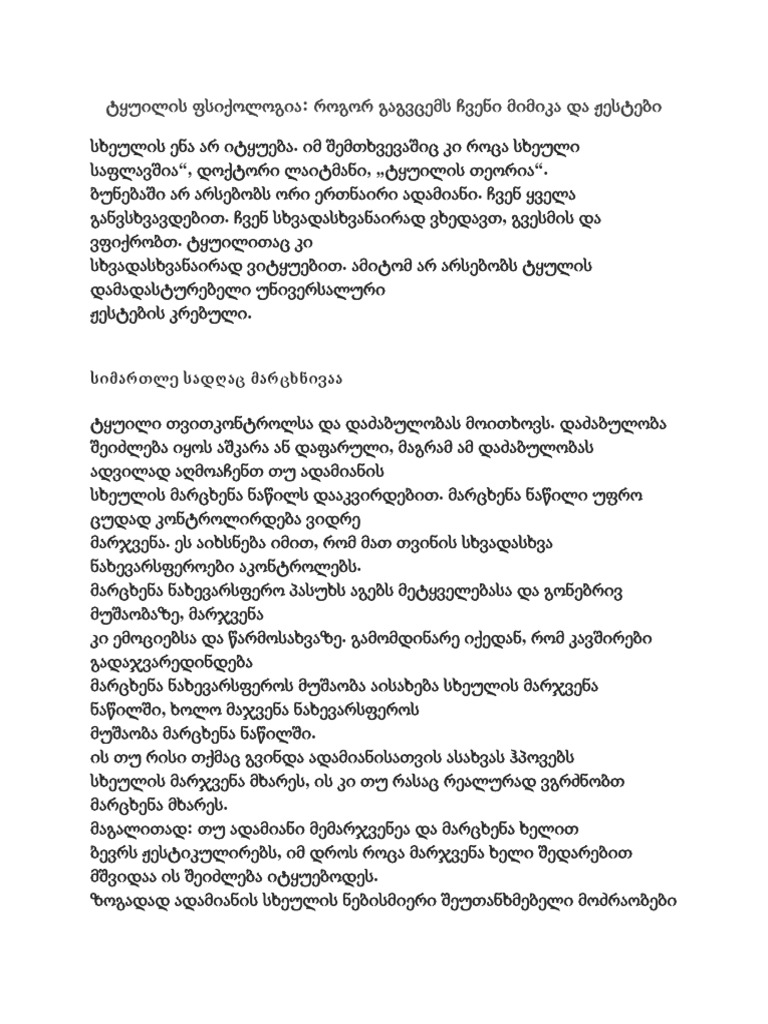 ტყუილის ფსიქოლოგია: როგორ გაგვცემს ჩვენი მიმიკა და ჟესტები
სხეულის ენა არ იტყუება. იმ შემთხვევაშიც კი როცა სხეული
საფლავშია“, დოქტორი ლაიტმანი, „ტყუილის თეორია“.
ბუნებაში არ არსებობს ორი ერთნაირი ადამიანი. ჩვენ ყველა
განვსხვავდებით. ჩვენ სხვადასხვანაირად ვხედავთ, გვესმის და
ვფიქრობთ. ტყუილითაც კი
სხვადასხვანაირად ვიტყუებით. ამიტომ არ არსებობს ტყულის
დამადასტურებელი უნივერსალური
ჟესტების კრებული.
სიმართლე სადღაც მარცხნივაა
ტყუილი თვითკონტროლსა და დაპაბულობას მოითხოვს. დაპაბულობა
შეიძლება იყოს აშკარა ან დაფარული, მაგრამ ამ დაპაბულობას
ადვილად აღმოაჩენთ თუ ადამიანის
სხეულის მარცხენა ნაწილს დააკვირდებით. მარცხენა ნაწილი უფრო
ცუდად კონტროლირდება ვიდრე
მარჯვენა. ეს აიხსნება იმით, რომ მათ თვინის სხვადასხვა
ნახევარსფეროები აკონტროლებს.
მარცხენა ნახევარსფერო პასუხს აგებს მეტყველებასა და გონებრივ
მუშაობაზე, მარჯვენა
კი ემოციებსა და წარმოსახვაზე. გამომდინარე იქედან, რომ კავშირები
გადაჯვარედინდება
მარცხენა ნახევარსფეროს მუშაობა აისახება სხეულის მარჯვენა
ნაწილში, ხოლო მაჯვენა ნახევარსფეროს
მუშაობა მარცხენა ნაწილში.
ის თუ რისი თქმაც გვინდა ადამიანისათვის ასახვას ჰპოვებს
სხეულის მარჯვენა მხარეს, ის კი თუ რასაც რეალურად ვგრძნობთ
მარცხენა მხარეს.
მაგალითად: თუ ადამიანი მემარჯვენეა და მარცხენა ხელით
ბევრს ჟესტიკულირებს, იმ დროს როცა მარჯვენა ხელი შედარებით
მშვიდაა ის შეიძლება იტყუებოდეს.
ზოგადად ადამიანის სხეულის ნებისმიერი შეუთანხმებელი მოძრაობები